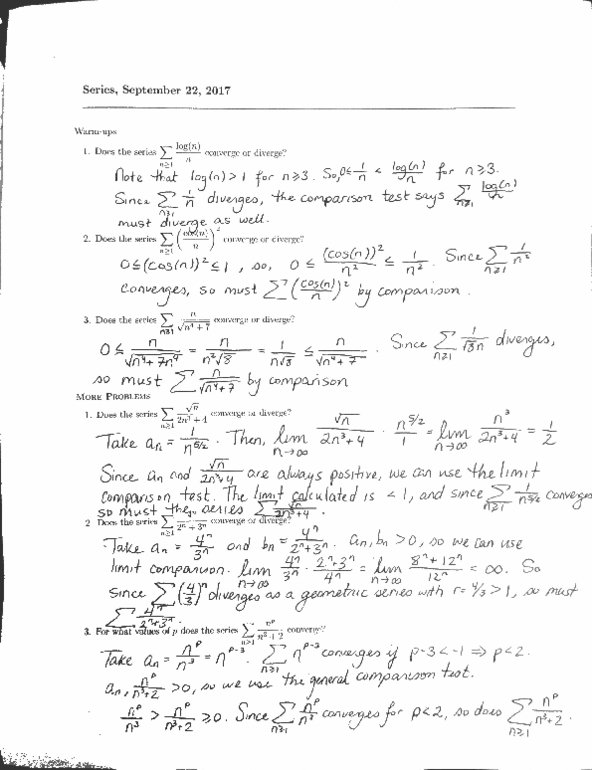 Series, September 22, 2017
Warm-ups
1. Does the series ∑_{n≥1} log(n)/n converge or diverge?
Note that log(n) > 1 for n ≥ 3. So, 0 ≤ 1/n < log(n)/n for n ≥ 3.
Since ∑_{n≥1} 1/n diverges, the comparison test says ∑_{n≥1} log(n)/n
must diverge as well.
2. Does the series ∑_{n≥1} (cos(n)/n)² converge or diverge?
0 ≤ (cos(n))² ≤ 1, so, 0 ≤ (cos(n))²/n² ≤ 1/n². Since ∑_{n≥1} 1/n²
converges, so must ∑ (cos(n)/n)² by comparison.
3. Does the series ∑_{n≥1} n/√(n⁴+7) converge or diverge?
0 ≤ n/√(n⁴+7n⁴) = n/(n²√8) = 1/(n√8) ≤ n/√(n⁴+7). Since ∑_{n≥1} 1/(√8n) diverges,
so must ∑ n/√(n⁴+7) by comparison
More Problems
1. Does the series ∑_{n≥1} √n/(2n³+4) converge or diverge?
Take aₙ = 1/n^{5/2}. Then, lim_{n→∞} √n/(2n³+4) · n^{5/2}/1 = lim_{n→∞} n³/(2n³+4) = 1/2
Since aₙ and √n/(2n³+4) are always positive, we can use the limit
comparison test. The limit calculated is < 1, and since ∑_{n≥1} 1/n^{5/2} converges
so must the series ∑ √n/(2n³+4).
2 Does the series ∑_{n≥1} 4ⁿ/(2ⁿ+3ⁿ) converge or diverge?
Take aₙ = 4ⁿ/3ⁿ and bₙ = 4ⁿ/(2ⁿ+3ⁿ). aₙ, bₙ > 0, so we can use
limit comparison. lim_{n→∞} 4ⁿ/3ⁿ · (2ⁿ+3ⁿ)/4ⁿ = lim_{n→∞} (8ⁿ+12ⁿ)/12ⁿ = ∞. So
since ∑ (4/3)ⁿ diverges as a geometric series with r = 4/3 > 1, so must
∑ 4ⁿ/(2ⁿ+3ⁿ).
3. For what values of p does the series ∑_{n≥1} nᵖ/(n³+2) converge?
Take aₙ = nᵖ/n³ = n^{p-3}. ∑_{n≥1} n^{p-3} converges if p-3 < -1 ⇒ p < 2.
aₙ, nᵖ/(n³+2) > 0, so we use the general comparison test.
nᵖ/n³ > nᵖ/(n³+2) ≥ 0. Since ∑_{n≥1} nᵖ/n³ converges for p < 2, so does ∑_{n≥1} nᵖ/(n³+2).